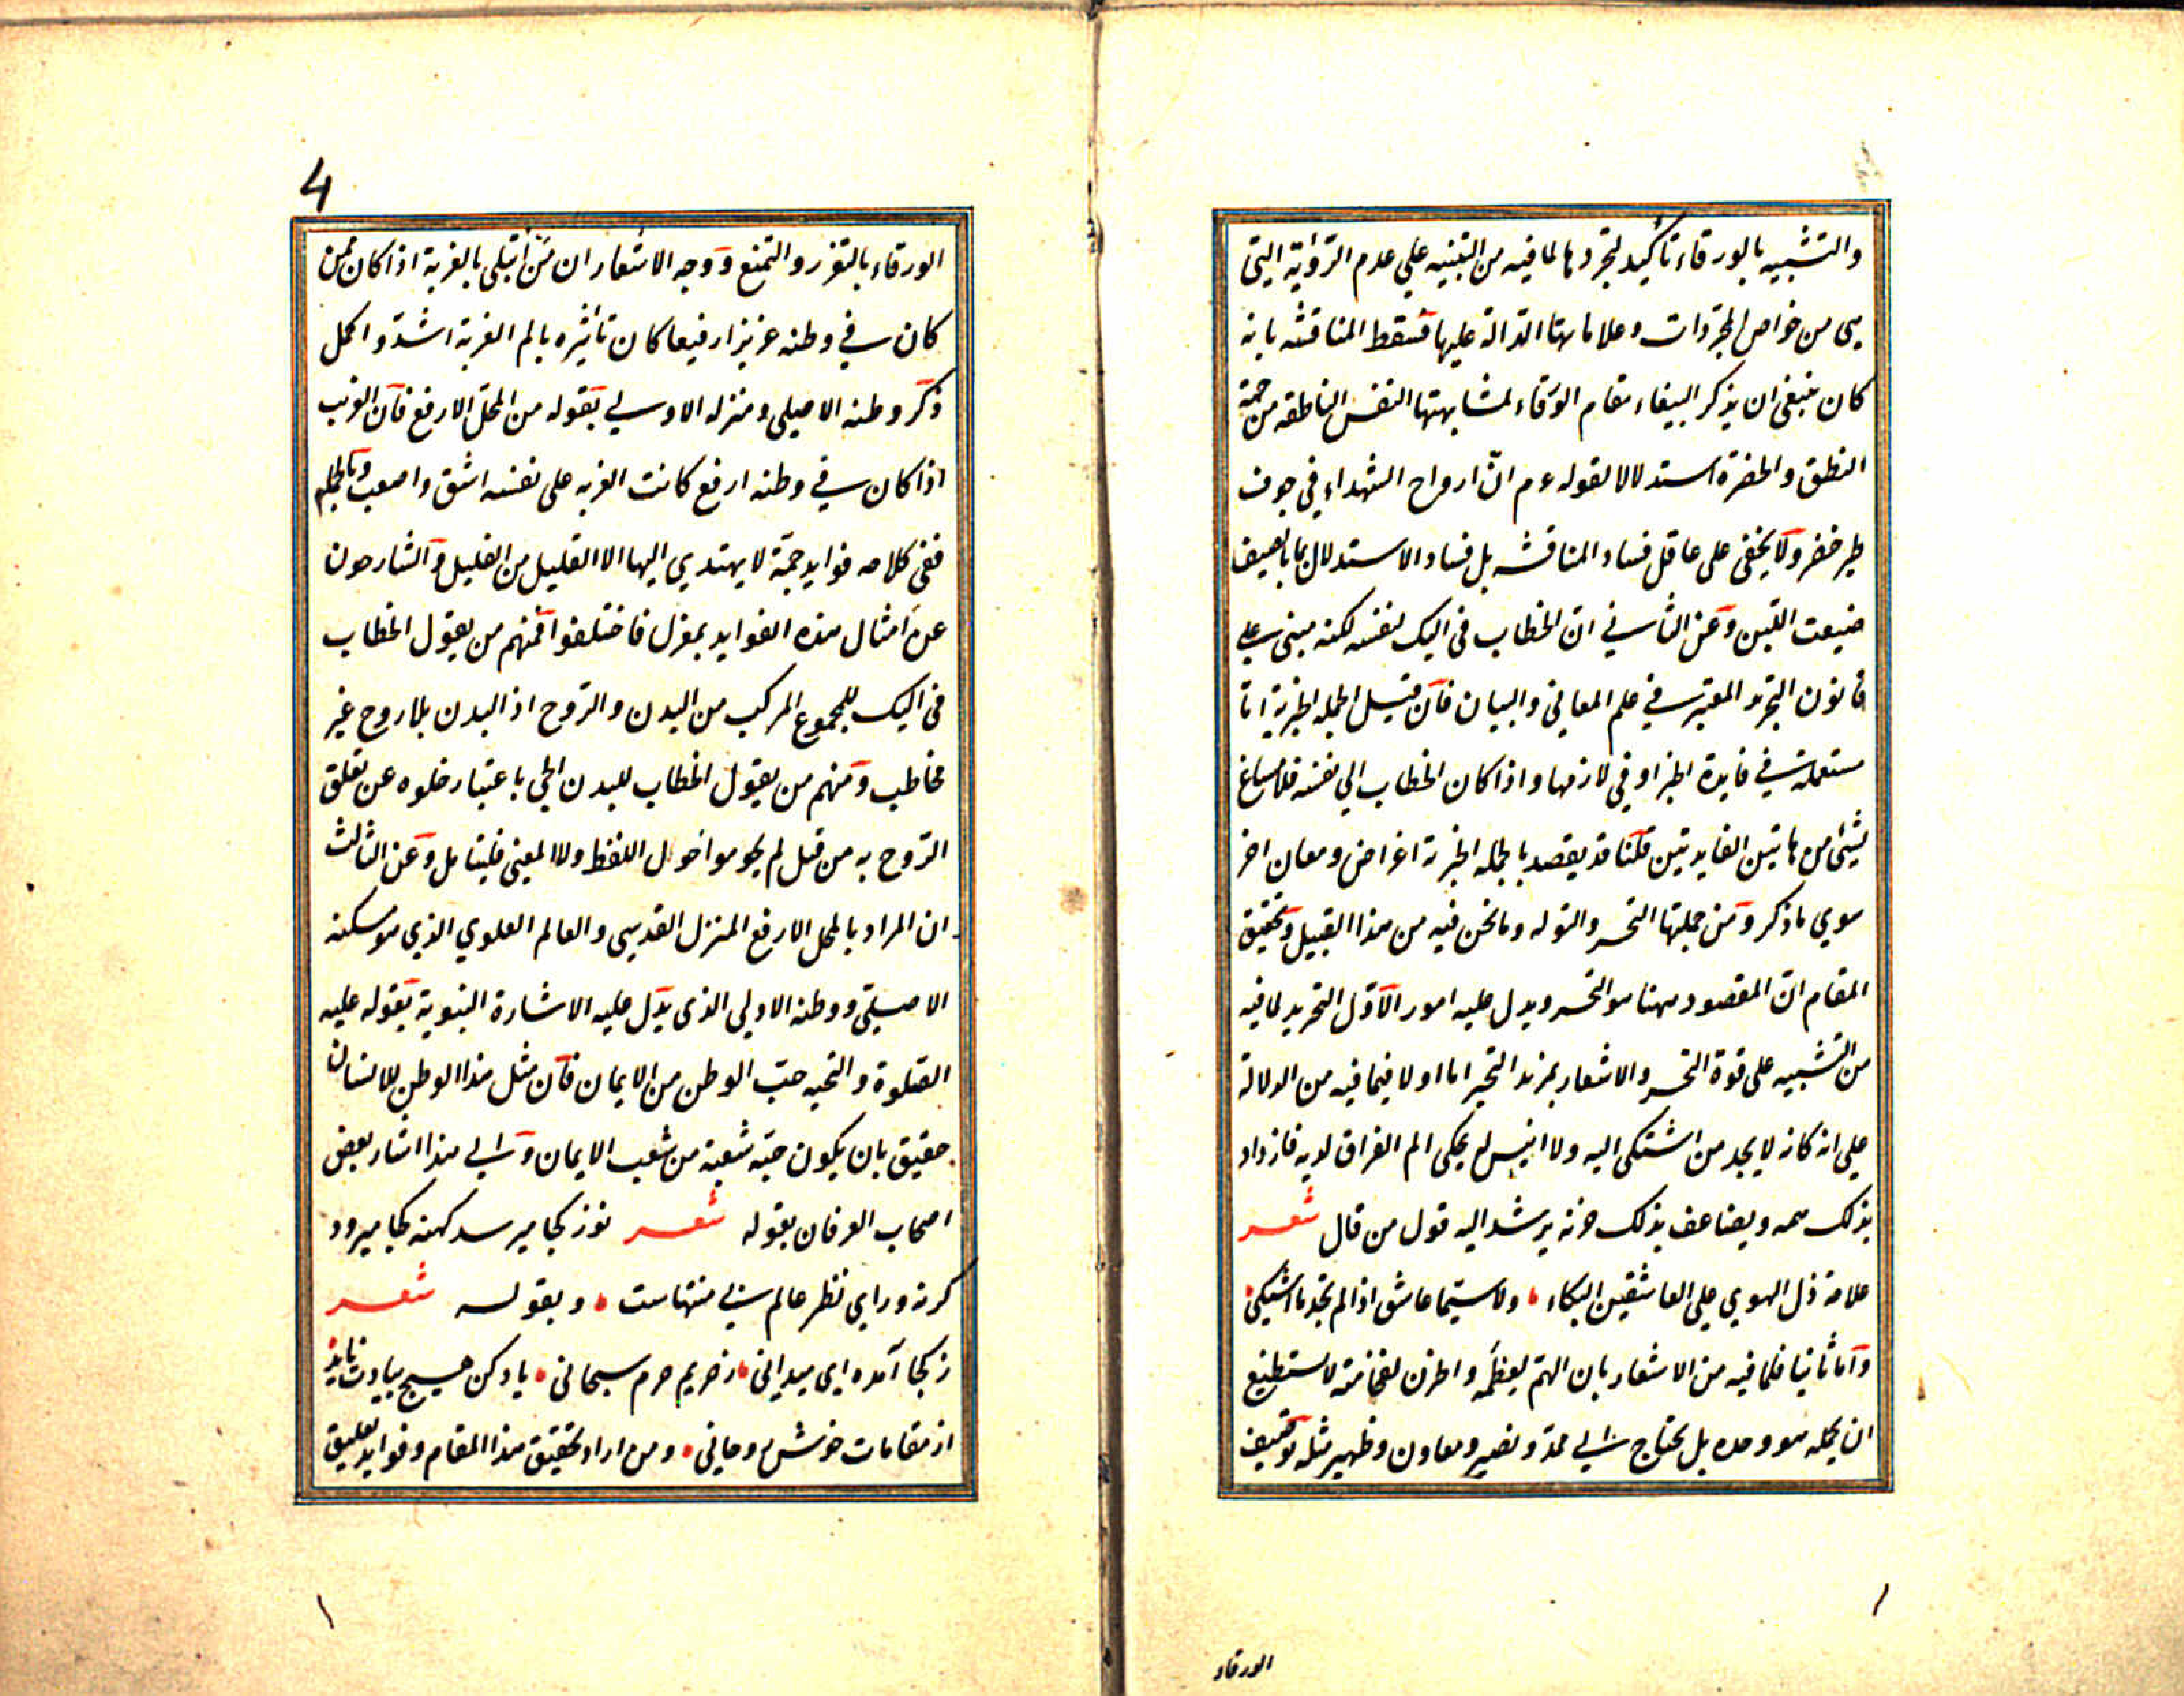 والتشبيه بالورقاء تأكيد لتجردها لما فيه من التنبيه علي عدم الرؤية التي
هي من خواص المجردات وعلاماتها الدالة عليها فسقط المناقشه بانه
كان ينبغي ان يذكر الببغاء مقام الورقاء لمشابهتها النفس الناطقه من جهة
النطق والخضرة استدلالا لقوله عم انّ ارواح الشهداء في جوف
طير خضر ولا يخفى على عاقل فساد المناقشه بل فساد الاستدلال بما بالصيف
ضيعت اللبن وعن الثاني ان الخطاب في اليک لنفسه لكنه مبني علي
قانون التجريد المعتبر في علم المعاني والبيان فان قيل الجمله الخبرية انما
مستعملة في فايدة الخبر او في لازمها واذا كان الخطاب الي نفسه فلا مساغ
لشئ من هاتين الفايدتين قلنا قد يقصد بالجمله الخبرية اغراض ومعان اخر
سوي ما ذكر ومن جملتها التحسر والتوله وما نحن فيه من هذا القبيل وتحقيق
المقام ان المقصود ههنا هو التحسر ويدل عليه امور الاول التجريد لما فيه
من التشبيه على قوة التحسر والاشعار بمزيد التحير اما اولا فيما فيه من الدلالة
علي انه كانه لا يجد من اشتكى اليه ولا انيس له يحكى الم الفراق لديه فازداد
بذلک همه ويضاعف بذلک حزنه يرشد اليه قول من قال شعر
علامة ذل الهوي علي العاشقين البكاء ولا سيما عاشق اذا لم يجد ما اشتكي
واما ثانيا فلما فيه من الاشعار بان الهم لعظمه والحزن لفخامته لا يستطيع
ان يحمله هو وحده بل يحتاج الي ممد ونصير ومعاون وظهير مثله توصيف
الورقاء
4
الورقاء بالتعزز والتمنع ووجه الاشعار ان من ابتلي بالغربة اذا كان ممن
كان في وطنه عزيزا رفيعا كان تاثيره بالم الغربة اشد واكمل
ذكر وطنه الاصلي ومنزله الاولي بقوله من المحل الارفع فان الغريب
اذا كان في وطنه ارفع كانت الغربه على نفسه اشق واصعب وبالجمله
ففي كلامه فوايد جمة لا يهتدي اليها الا القليل من القليل والشارحون
عن امثال هذه الفوايد بمعزل فاختلفوا فمنهم من يقول الخطاب
في اليک للمجموع المركب من البدن والروح اذ البدن بلا روح غير
مخاطب ومنهم من يقول الخطاب للبدن الحي باعتبار خلوه عن تعلق
الروح به من قبل لم يحوموا حول اللفظ ولا المعني فليتامل وعن الثالث
ان المراد بالمحل الارفع المنزل القدسي والعالم العلوي الذي هو مسكنه
الاصلي ووطنه الاولي الذي يدل عليه الاشارة النبوية بقوله عليه
الصلوة والتحيه حب الوطن من الايمان فان مثل هذا الوطن للانسان
حقيق بان يكون حبه شعبة من شعب الايمان والي هذا اشار بعض
اصحاب العرفان بقوله شعر نوز كجا ميرسد كهنه كجا ميرود
كرنه وراي نظر عالم بي منتهاست وبقوله شعر
ز كجا آمده اي ميداني ز حريم حرم سبحاني ياد كن هيچ بيادت نايد
از مقامات خوش روحاني ومن اراد تحقيق هذا المقام وفوايد تعليق